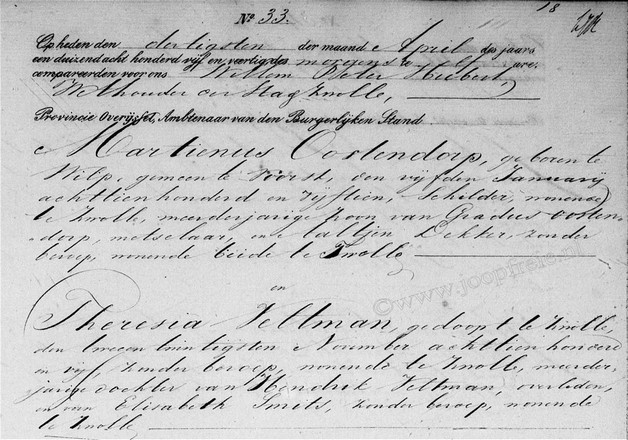 18
No 33.
Op heden den dertigsten der maand April des jaars
een duizend acht honderd vijf en veertig des morgens te elf ure.
compareerden voor ons Willem Pieter Hubert,
Wethouder der Stad Zwolle,
Provincie Overijssel, Ambtenaar van den Burgerlijken Stand.
Martienus Oostendorp, geboren te
Wilp, gemeente Voorst, den vijfden Januarij
achttien honderd en vijftien, Schilder, wonende
te Zwolle, meerderjarige zoon van Gradus Oosten-
dorp, metselaar, en Aaltjen Dekker, zonder
beroep, wonende beide te Zwolle
en
Theresia Veltman, gedoopt te Zwolle,
den twee en twintigsten November achttien honderd
en vijf, zonder beroep, wonende te Zwolle, meerder-
jarige dochter van Hendrik Veltman, overleden,
en van Elisabeth Smits, zonder beroep, wonende
te Zwolle